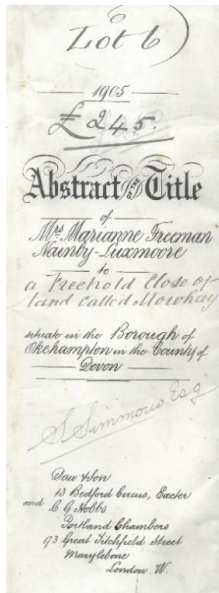 Lot 6)
1905
£245.
Abstract of Title
of
Mrs Marianne Freeman
Nainby-Luxmoore
to
a Freehold Close of
land called Mowhay
situate in the Borough of
Okehampton in the County of
Devon
S Simmons Esq
Daw & Son
13 Bedford Circus, Exeter
and C G Hobbs
Portland Chambers
93 Great Titchfield Street
Marylebone
London. W.